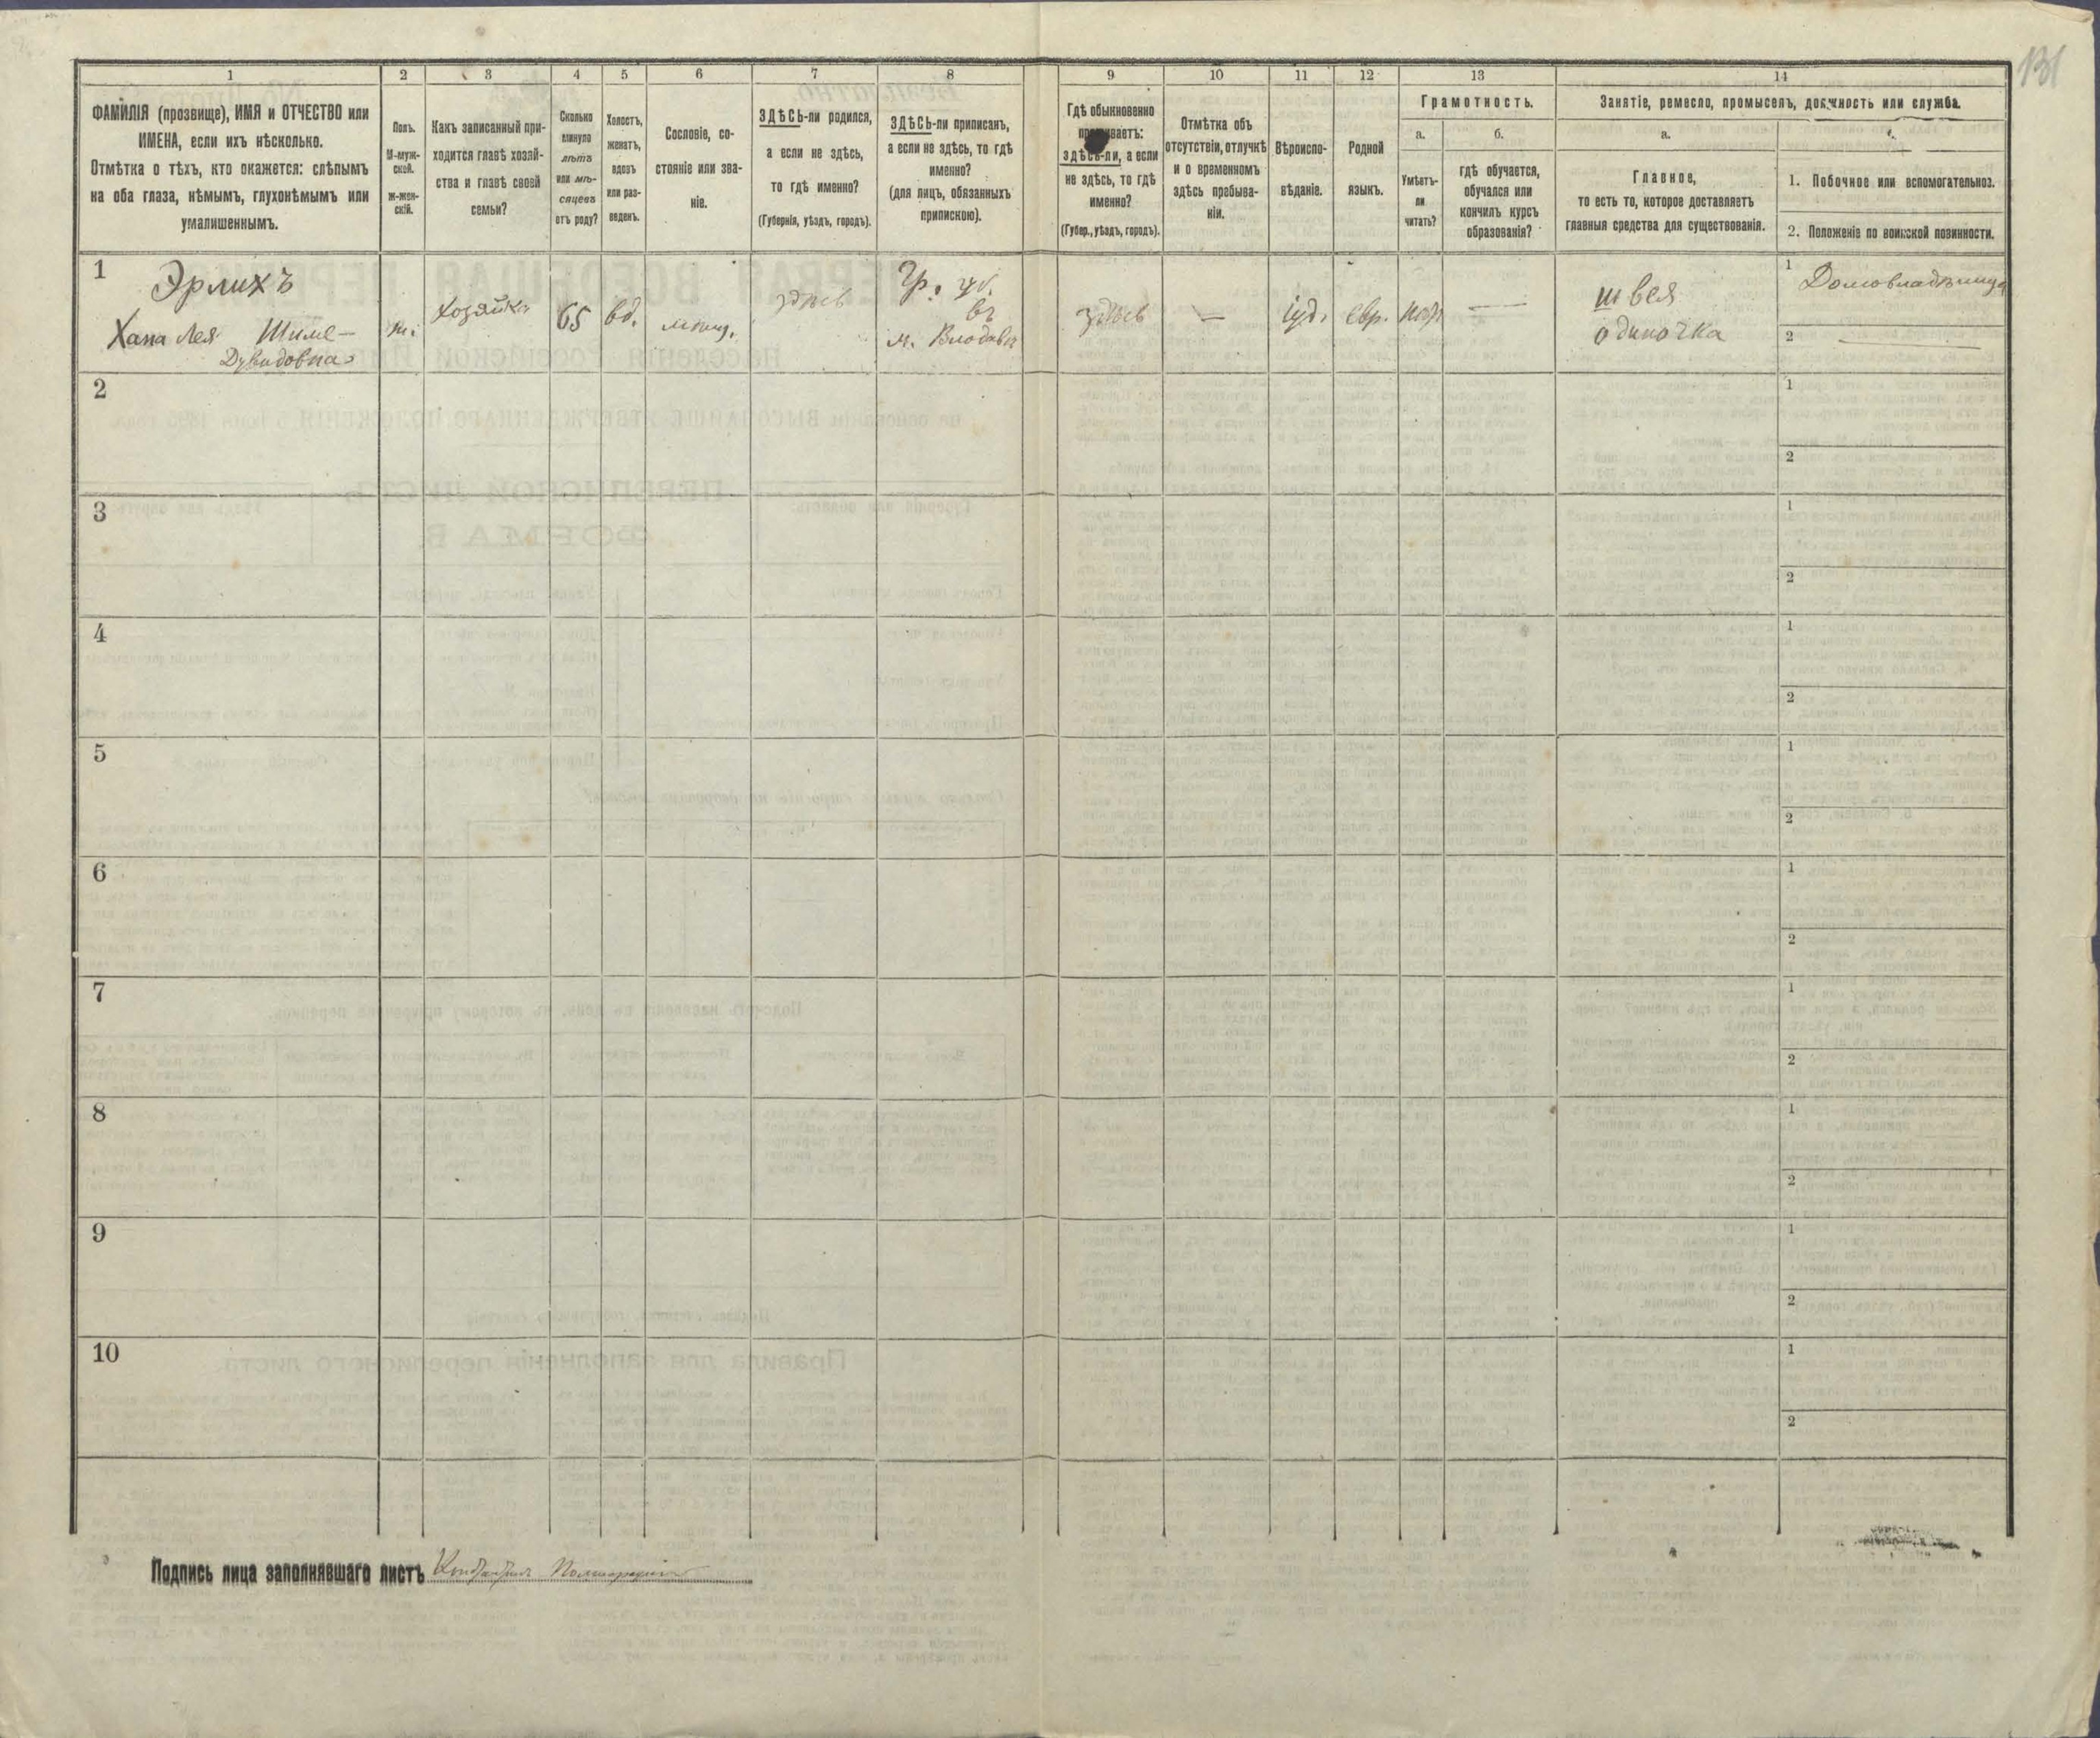 131
1
2
3
4
5
6
7
8
9
10
11
12
13
14
ФАМИЛІЯ (прозвище), ИМЯ и ОТЧЕСТВО или
ИМЕНА, если ихъ нѣсколько.
Отмѣтка о тѣхъ, кто окажется: слѣпымъ
на оба глаза, нѣмымъ, глухонѣмымъ или
умалишеннымъ.
Полъ.
М-муж-
ской.
Ж-жен-
скій.
Какъ записанный при-
ходится главѣ хозяй-
ства и главѣ своей
семьи?
Сколько
минуло
лѣтъ
или мѣ-
сяцевъ
отъ роду?
Холостъ,
женатъ,
вдовъ
или раз-
веденъ.
Сословіе, со-
стояніе или зва-
ніе.
ЗДѢСЬ-ли родился,
а если не здѣсь,
то гдѣ именно?
(Губернія, уѣздъ, городъ).
ЗДѢСЬ-ли приписанъ,
а если не здѣсь, то гдѣ
именно?
(для лицъ, обязанныхъ
припискою).
Гдѣ обыкновенно
проживаетъ:
здѣсь-ли, а если
не здѣсь, то гдѣ
именно?
(Губер., уѣздъ, городъ).
Отмѣтка объ
отсутствіи, отлучкѣ
и о временномъ
здѣсь пребыва-
ніи.
Вѣроиспо-
вѣданіе.
Родной
языкъ.
Грамотность.
а.
б.
Умѣетъ-
ли
читать?
гдѣ обучается,
обучался или
кончилъ курсъ
образованія?
Занятіе, ремесло, промыселъ, должность или служба.
а.
Главное,
то есть то, которое доставляетъ
главныя средства для существованія.
1. Побочное или вспомогательноз.
2. Положеніе по воинской повинности.
1
Эрлихъ
Хана Лея Шиме-
Дувидовна
хозяйка
65
вд.
мѣщ.
здѣсь
Гр. уб.
въ
м. Влодавѣ
здѣсь
—
іуд.
евр.
—
швея
одиночка
1
Домовладѣлица
2
2
1
2
3
1
2
4
1
2
5
1
2
6
1
2
7
1
2
8
1
2
9
1
2
10
1
2
Подпись лица заполнявшаго листъ